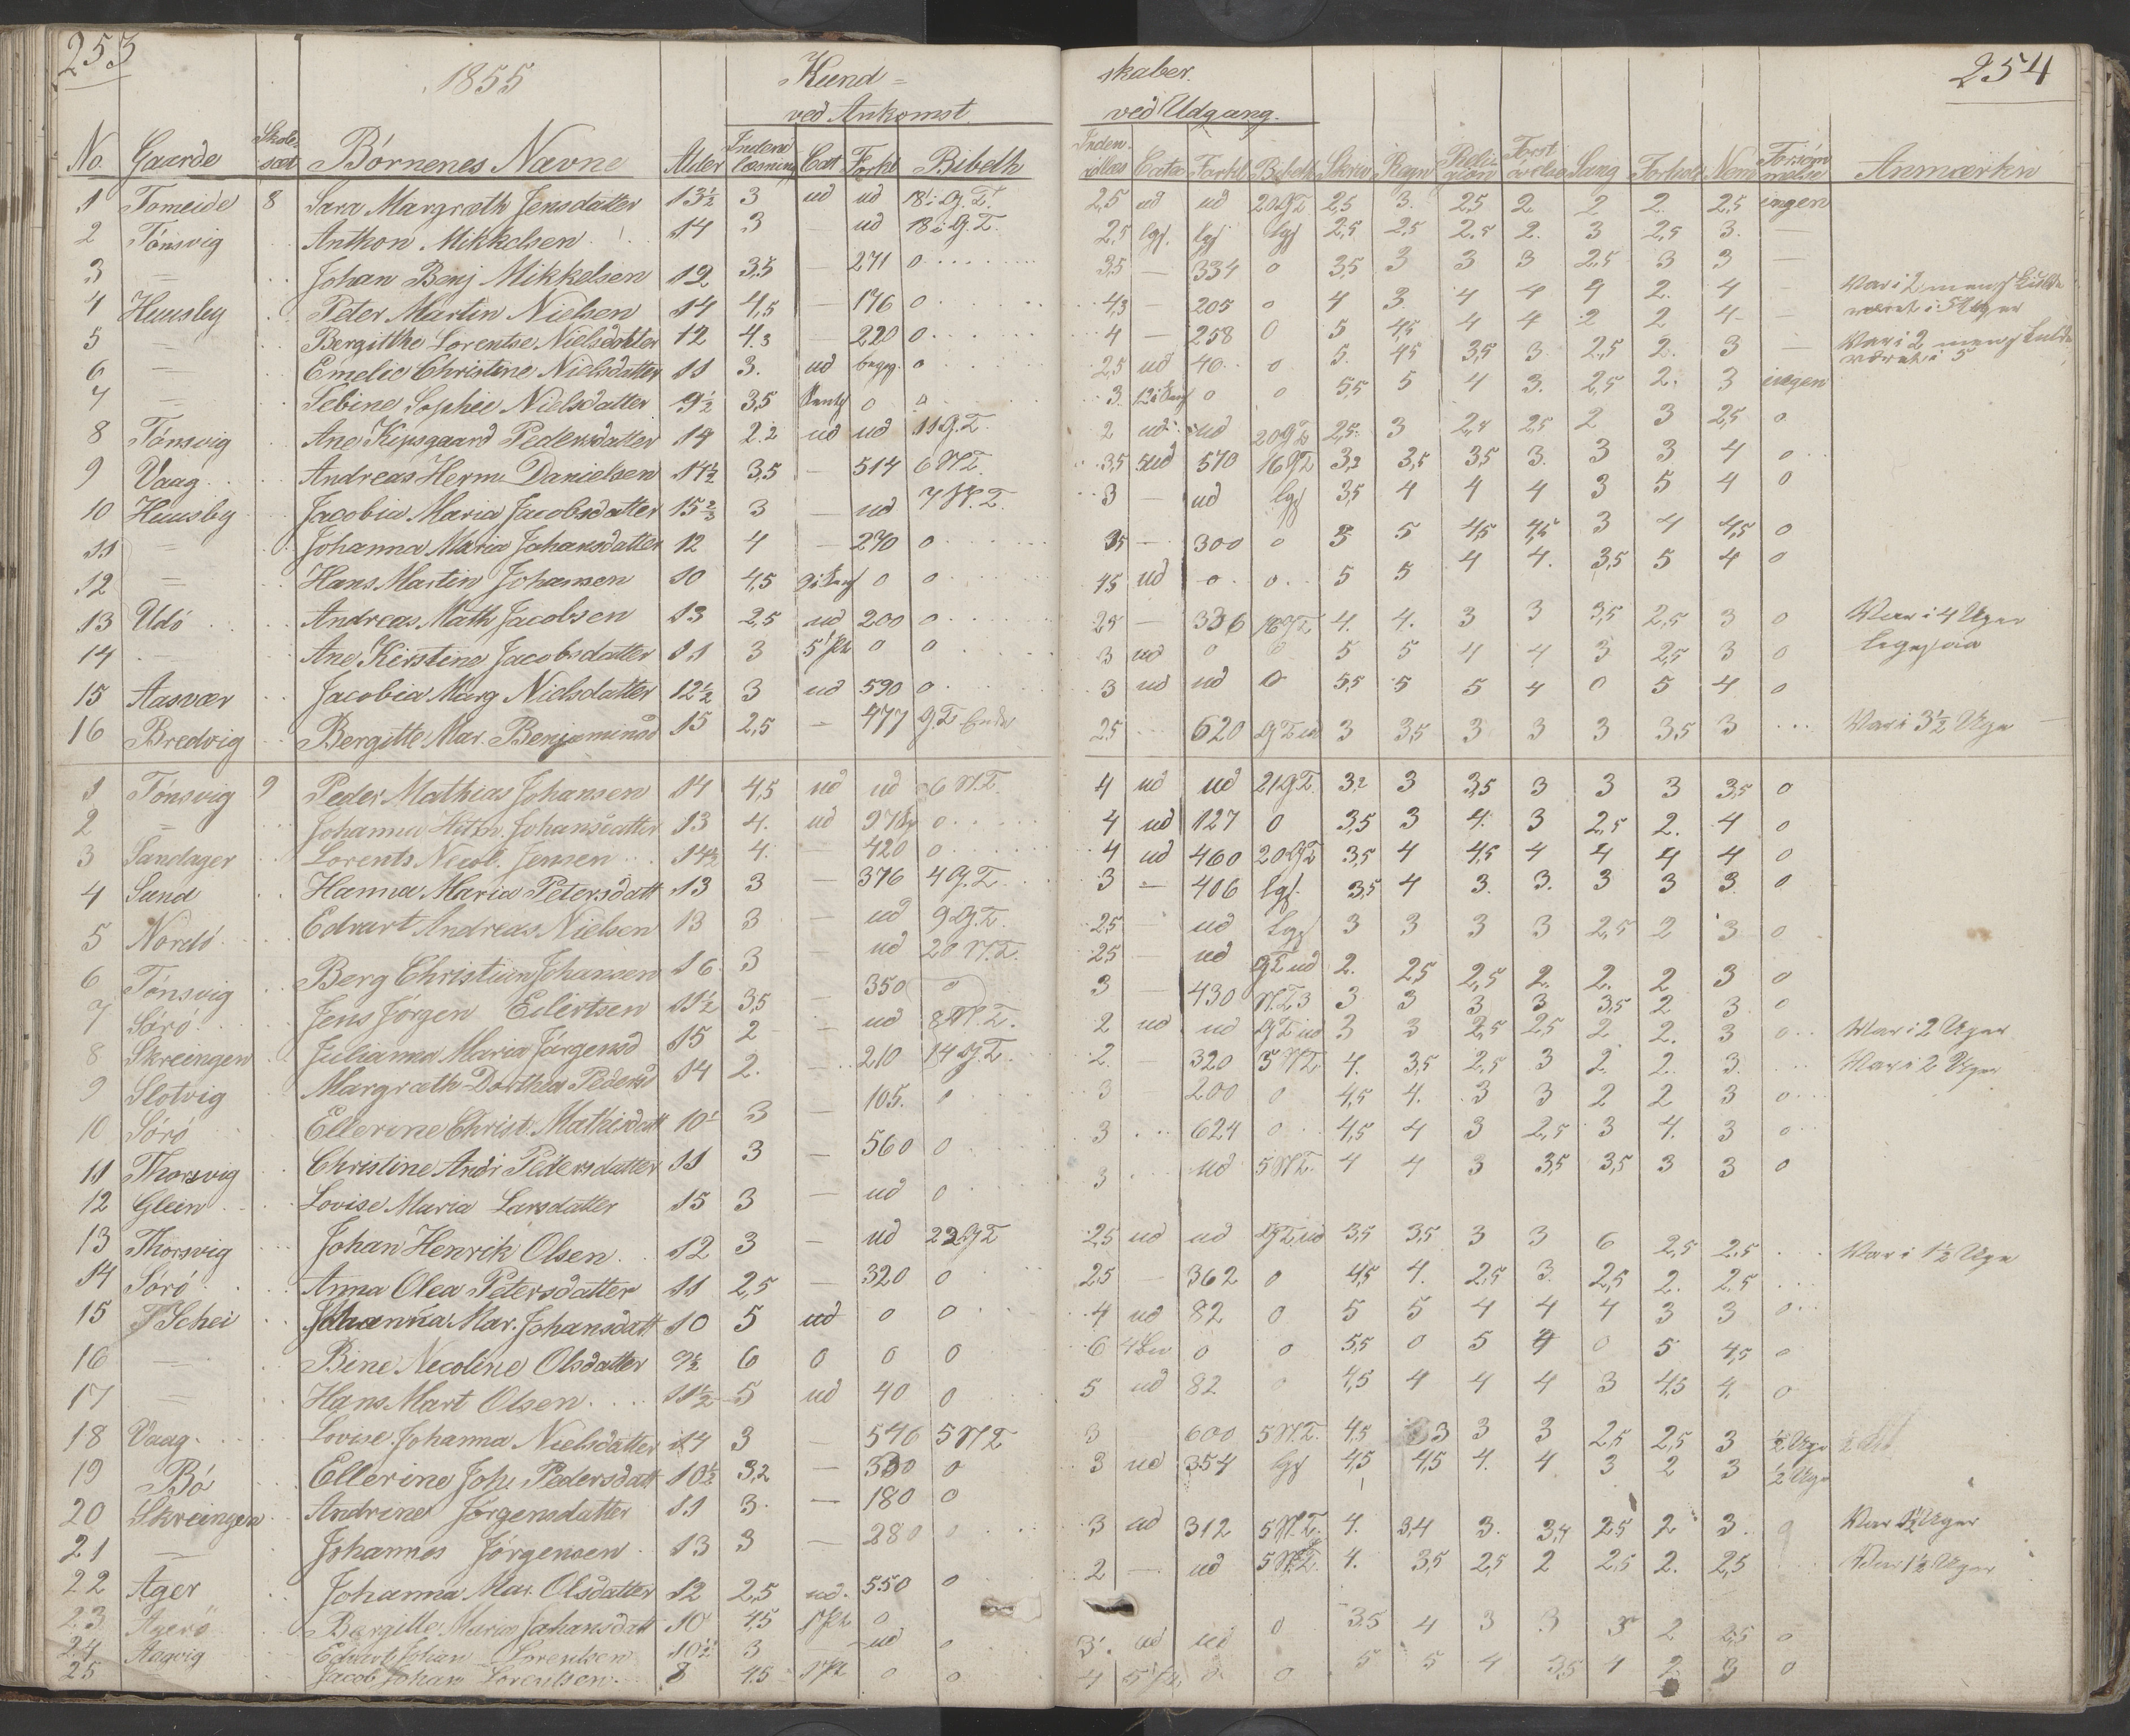 253
1855
Kund-
ved Ankomst
No. Gaarde Skole- sæt Børnenes Navne Alder Inden læsning Cat Forkl Bibelh
1 Tomeide 8 Sara Margræth Jensdatter 13½ 3 ud ud 18 i G.T.
2 Tønsvig Anthon Mikkelsen 14 3 — ud 18 i G.T.
3 — Johan Benj Mikkelsen 12 3,5 — 271 0
4 Huusby Peter Martin Nielsen 14 4,5 — 176 0
5 — Bergitthe Lorentse Nielsdatter 12 4.3 — 220 0
6 — Emelie Christine Nielsdatter 11 3. ud 0
7 — Sebine Sophie Nielsdatter 9½ 3,5 0 0
8 Tønsvig Ane Kipsgaard Pedersdatter 14 2.2 ud ud 11 G.T.
9 Vaag Andreas Herm Danielsen 14½ 3,5 — 514 6 N.T.
10 Huusby Jacobia Maria Jacobsdatter 15⅔ 3 — ud 7 N.T.
11 — Johanna Maria Johansdatter 12 4 — 270 0
12 — Hans Martin Johansen 10 4,5 0 0
13 Udø Andreas Math Jacobsen 13 2,5 ud 200 0
14 — Ane Kirstine Jacobsdatter 11 3 0 0
15 Aasvær Jacobia Marg Nielsdatter 12½ 3 ud 590 0
16 Bredvig Bergitte Mar. Benjaminsd 15 2,5 — 477 G.T.
1 Tønsvig 9 Peder Mathias Johansen 14 4,5 ud ud 6 N.T.
2 — Johanna Johansdatter 13 4. ud 0
3 Sandager Lorents Necol. Jensen 14½ 4. — 420 0
4 Sund Hanna Maria Petersdatt 13 3 — 376 4 G.T.
5 Nordø Edvart Andreas Nielsen 13 3 — ud 9 G.T.
6 Tønsvig Berg Christian Johansen 16 3 ud 20 N.T.
7 Sørø Jens Jørgen Edertsen 11½ 3,5 — 350 0
8 Skreingen Julianna Maria Jørgensd 15 2 — ud 8 N.T.
9 Slotvig Margræth Dorthea Pedersd 14 2. — 210 14 G.T.
10 Sørø Ellerine Christ. Mathisdatt 10½ 3 — 105. 0
11 Thorsvig Christine Andr Pedersdatter 11 3 — 560 0
12 Glein Lovise Maria Larsdatter 15 3 — ud 0
13 Thorsvig Johan Henrik Olsen 12 3 — ud 22 G.T
14 Sørø Anna Olea Petersdatter 11 2,5 — 320 0
15 Schei Johanna Mar. Johansdatt 10 5 ud 0 0
16 — Bine Necoline Olsdatter 9½ 6 0 0 0
17 — Hans Mart Olsen 11½ 5 ud 40 0
18 Vaag Lovise Johanna Nielsdatter 14 3 — 546 5 N.T
19 Bø Ellerine Joh. Pedersdatt 10½ 3,2 — 330 0
20 Skreingen Andrine Jørgensdatter 11 3 — 180 0
21 — Johannes Jørgensen 13 3 — 280 0
22 Ager Johanna Mar. Olsdatter 12 2,5 ud. 550 0
23 Agerø Bergitte Maria Johansdatt 10 4,5 0
24 Aagvig Edvart Johan Lorentsen 10½ 3 — ud 0
25 Jacob Johan Lorentsen 8 4.5 0 0
254
skaber.
ved Udgang.
Cata Forkl Bibelh Skriv Regn Religion Sang Forhold Nem Forsømmelse Anmærkn
2,5 ud ud 20 G.T 2,5 3. 2,5 2 2 2. 2,5 ingen
2,5 lgf. lgf lgf 2,5 2,5 2.5 2. 3 2,5 3. —
3,5 — 334 0 3,5 3 3 3 2,5 3 3 —
4,3 — 205 0 4 3. 4 4 4 2. 4 — Var i 2, men skulde været i 5 Uger
4 — 258 0 5 4,5 4 4 2 2 4 — Var i 2 men skulde været i 5
2,5 ud 40 0 5. 4,5 3,5 3 2,5 2. 3 —
3. 0 0 5,5 5 4 3. 2,5 2. 3 ingen
2 ud ud 20 G.T 2,5 3 2,5 2,5 2 3 2,5 0
3,5 ud 570 16 G.T 3,2 3,5 3,5 3. 3 3 4 0
3 — ud lgf 3,5 4 4 4 3 5 4 0
3,5 — 300 0 5 5 4,5 4,5 3 4 4,5 0
4,5 ud 0 0 5 5 4 4. 3,5 5 4 0
2,5 — 336 16 G.T 4. 4. 3 3 3,5 2,5 3 0 Var i 4 Uger
3 ud 0 0 5 5 4 4 3 2,5 3 0 ligesaa
3 ud ud 0 5,5 5 5 4 0 5 4 0
2,5 620 G.T ud 3 3,5 3 3 3 3,5 3 Var i 3½ Uge
4 ud ud 21 G.T. 3,2 3 3,5 3 3 3 3,5 0
4 ud 127 0 3,5 3 4. 3 2,5 2. 4 0
4 ud 460 20 G.T 3,5 4 4,5 4 4 4 4 0
3 — 406 lgf. 3,5 4 3. 3. 3 3 3. 0
2,5 — ud lgf 3 3 3 3 2,5 2 3 0
2,5 — ud G.T ud 2. 2,5 2,5 2. 2. 2 3 0
3 — 430 N.T 3 3 3 3 3 3,5 2 3. 0
2 ud ud G.T ud 3 3 2,5 2,5 2 2. 3 0 Var i 2 Uger
2. — 320 5 N.T. 4. 3,5 2,5 3 2. 2. 3. Var i 2 Uger
3 200 0 4,5 4. 3 3 2 2 3 0
3 624 0 4,5 4 3 2,5 3 4. 3 0
3 ud 5 N.T. 4 4 3 3,5 3,5 3 3 0
2,5 ud ud G.T. ud 3,5 3,5 3 3 6 2,5 2,5 Var i 1½ Uge
2,5 — 362 0 4,5 4. 2,5 3. 2,5 2. 2,5
4 ud 82 0 5 5 4 4 4 3 3 0
6 0 0 5,5 0 5 4 0 5 4,5 0
5 ud 82 0 4,5 4 4 4 3 4,5 4. 0
3 600 5 N.T. 4,5 3 3 3 2,5 2,5 3 ½ Uge
3 ud 354 lgf 4,5 4,5 4. 4 3 2 3 ½ Uge
3 ud 312 5 N.T. 4. 3,4 3. 3,4 2,5 2 3. Var 1½ Uger
2 — ud 5 N.T. 4. 3,5 2,5 2 2,5 2. 2,5 Var 1½ Uger
3. ud ud 0 3,5 4 3 3 3 2 2,5 0
4 0 0 5 5 4 3,5 4 2. 3 0